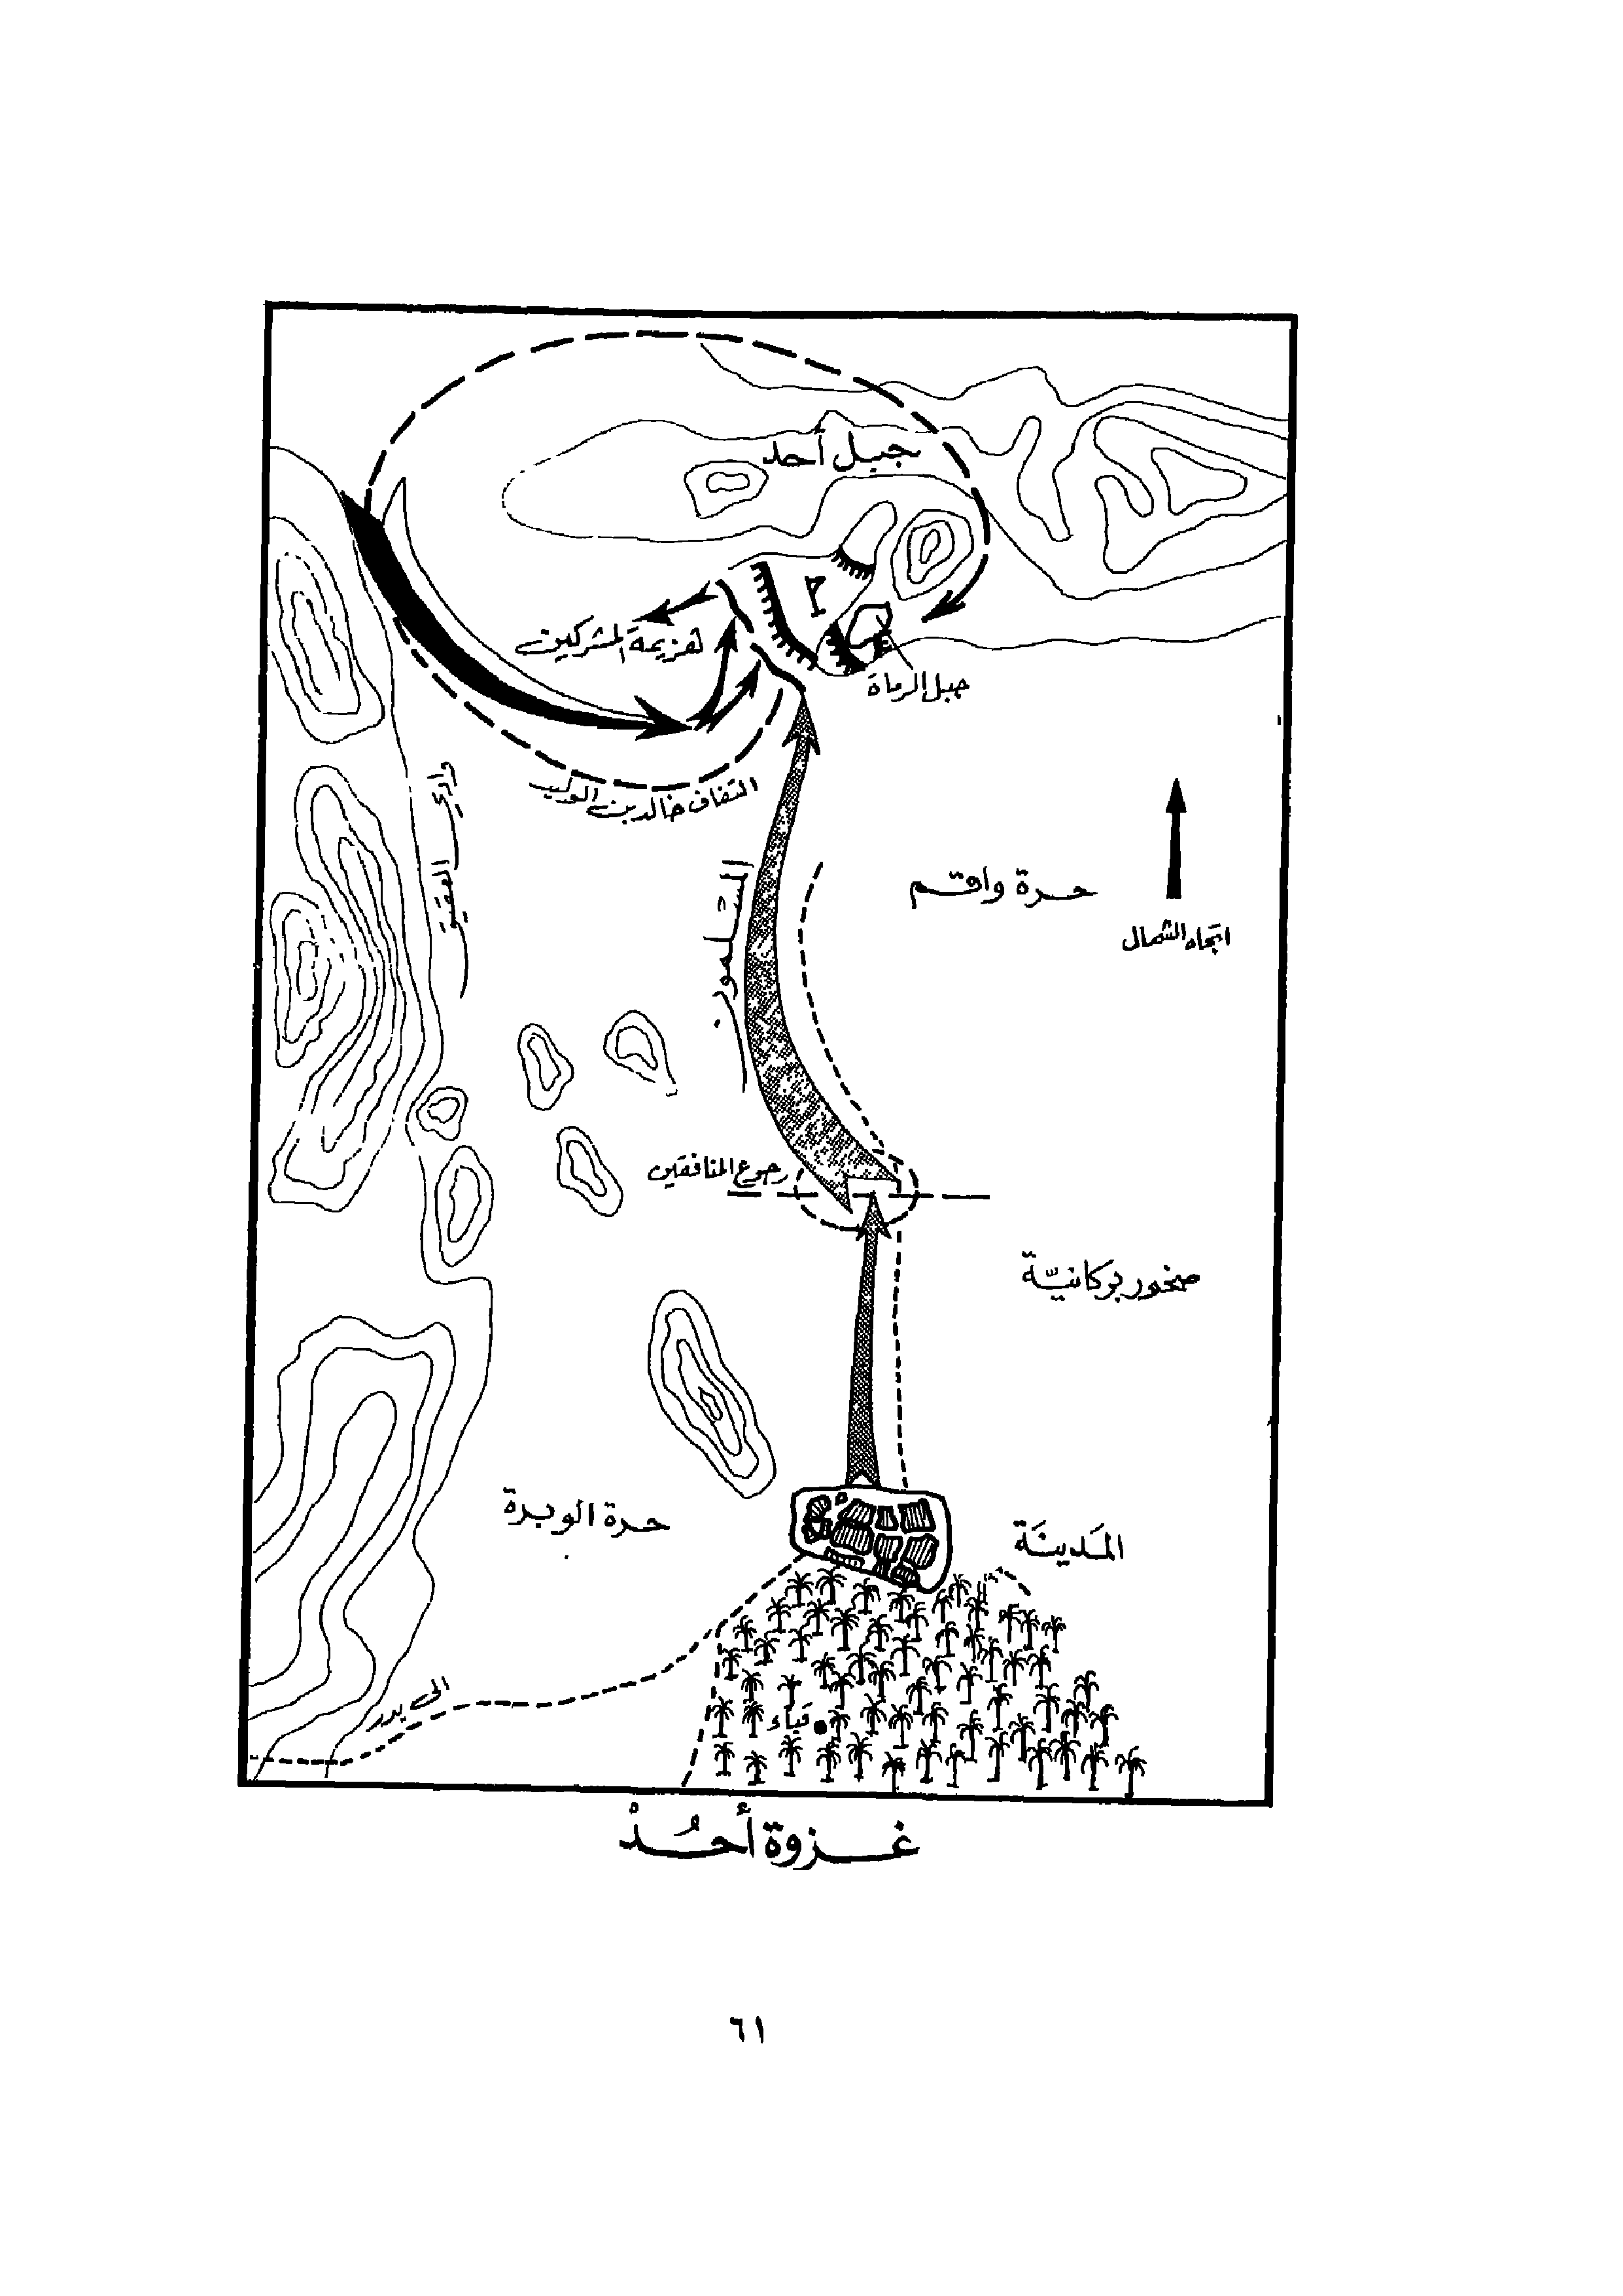 جبل أحد
م
هزيمة المشركين
جبل الرماة
التفاف خالد بن الوليد
وادي العقيق
المسلمون
حرة واقم
اتجاه الشمال
رجوع المنافقين
صخور بركانيّة
حرة الوبرة
المَدينَة
الى بدر
قباء
غزوة أُحُدْ
٦١